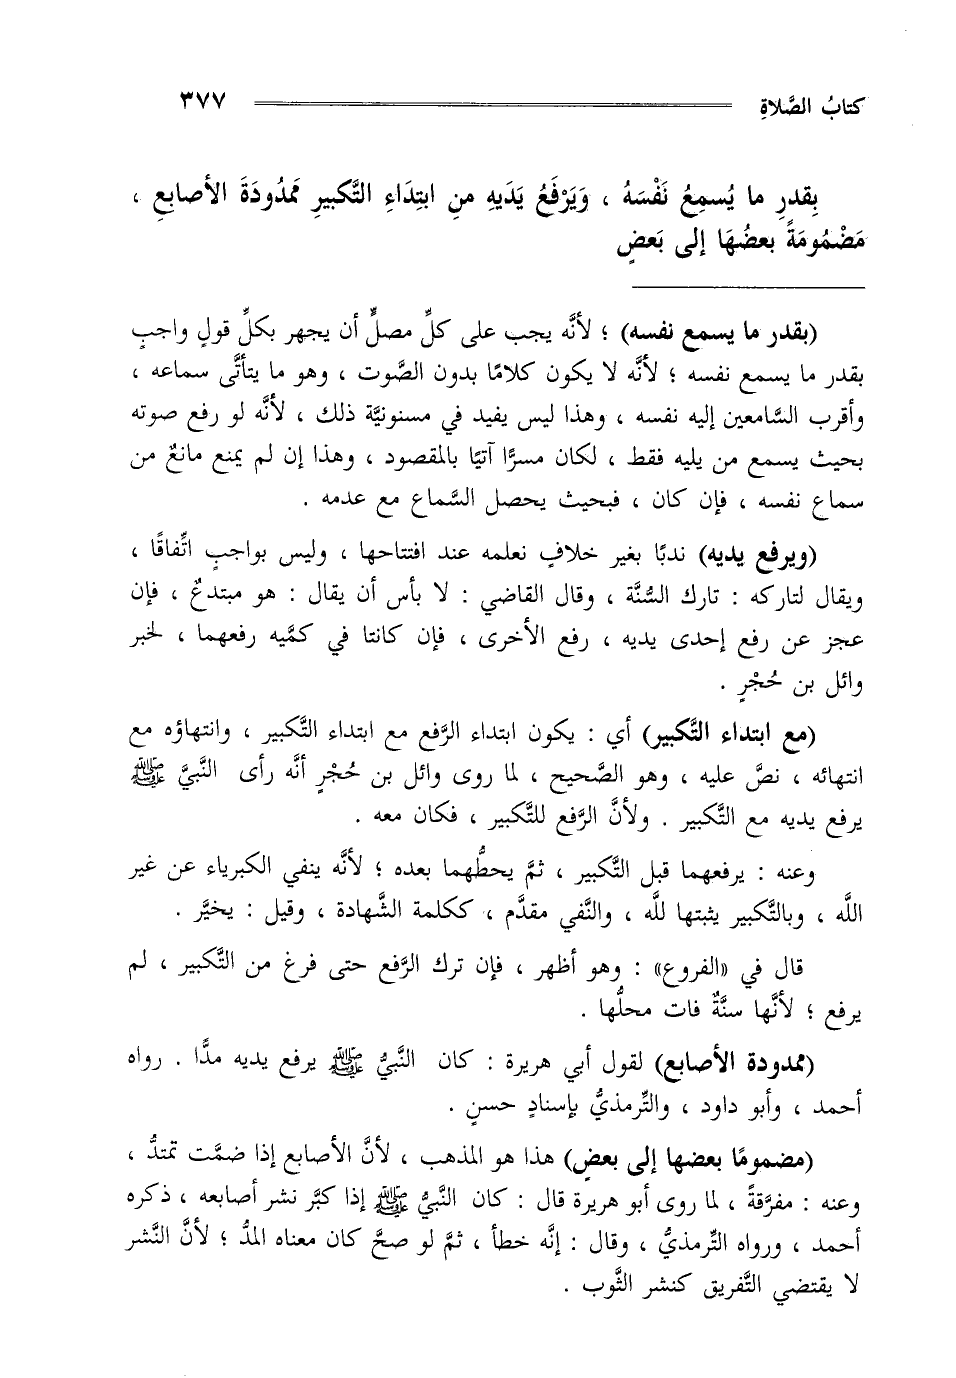 كتابُ الصَّلاةِ ٣٧٧
بِقدرِ ما يُسمِعُ نَفْسَهُ ، وَيَرْفَعُ يَدَيهِ منِ ابتِدَاءِ التَّكبيرِ مَمدُودَةَ الأصابعِ ،
مَضْمُومَةً بعضُهَا إلى بَعضٍ
(بقدر ما يسمع نفسه) ؛ لأنَّه يجب على كلِّ مصلٍّ أن يجهر بكلِّ قولٍ واجبٍ
بقدر ما يسمع نفسه ؛ لأنَّه لا يكون كلامًا بدون الصَّوت ، وهو ما يتأتَّى سماعه ،
وأقرب السَّامعين إليه نفسه ، وهذا ليس يفيد في مسنونيَّة ذلك ، لأنَّه لو رفع صوته
بحيث يسمع من يليه فقط ، لكان مسرًّا آتيًا بالمقصود ، وهذا إن لم يمنع مانعٌ من
سماع نفسه ، فإن كان ، فبحيث يحصل السَّماع مع عدمه .
(ويرفع يديه) ندبًا بغير خلافٍ نعلمه عند افتتاحها ، وليس بواجبٍ اتِّفاقًا ،
ويقال لتاركه : تارك السُّنَّة ، وقال القاضي : لا بأس أن يقال : هو مبتدعٌ ، فإن
عجز عن رفع إحدى يديه ، رفع الأخرى ، فإن كانتا في كمَّيه رفعهما ، لخبر
وائل بن حُجْرٍ .
(مع ابتداء التَّكبير) أي : يكون ابتداء الرَّفع مع ابتداء التَّكبير ، وانتهاؤه مع
انتهائه ، نصَّ عليه ، وهو الصَّحيح ، لما روى وائل بن حُجْرٍ أنَّه رأى النَّبيَّ ﷺ
يرفع يديه مع التَّكبير . ولأنَّ الرَّفع للتَّكبير ، فكان معه .
وعنه : يرفعهما قبل التَّكبير ، ثمَّ يحطُّهما بعده ؛ لأنَّه ينفي الكبرياء عن غير
اللَّه ، وبالتَّكبير يثبتها للَّه ، والنَّفي مقدَّم ، ككلمة الشَّهادة ، وقيل : يخيَّر .
قال في «الفروع» : وهو أظهر ، فإن ترك الرَّفع حتى فرغ من التَّكبير ، لم
يرفع ؛ لأنَّها سنَّةٌ فات محلُّها .
(ممدودة الأصابع) لقول أبي هريرة : كان النَّبيُّ ﷺ يرفع يديه مدًّا . رواه
أحمد ، وأبو داود ، والتِّرمذيُّ بإسنادٍ حسنٍ .
(مضمومًا بعضها إلى بعضٍ) هذا هو المذهب ، لأنَّ الأصابع إذا ضمَّت تمتدُّ ،
وعنه : مفرَّقةً ، لما روى أبو هريرة قال : كان النَّبيُّ ﷺ إذا كبَّر نشر أصابعه ، ذكره
أحمد ، ورواه التِّرمذيُّ ، وقال : إنَّه خطأ ، ثمَّ لو صحَّ كان معناه المدُّ ؛ لأنَّ النَّشر
لا يقتضي التَّفريق كنشر الثَّوب .